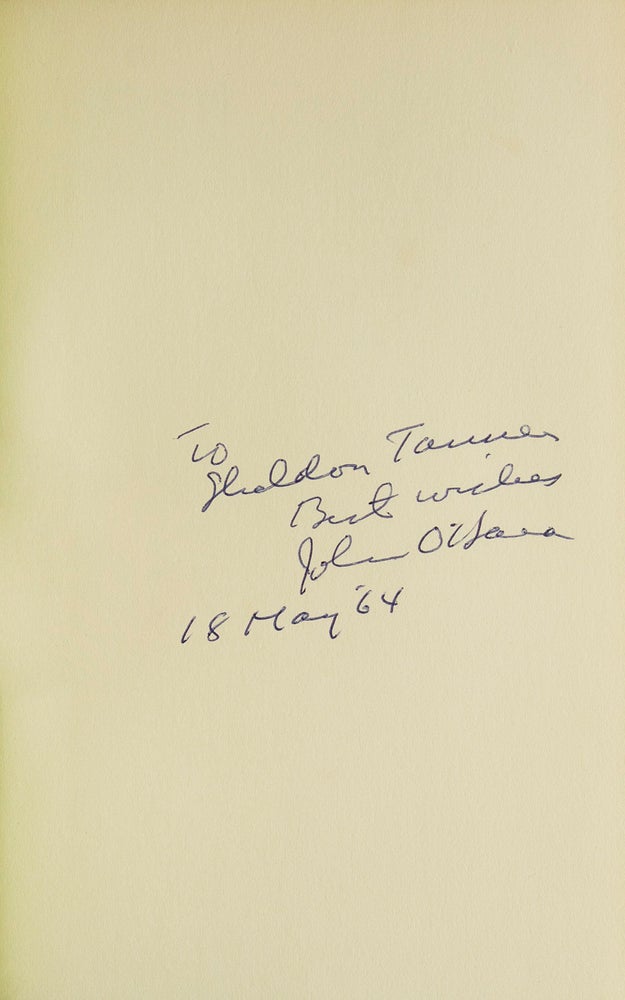 To
Sheldon Tanner
Best wishes
John O'Hara
18 May '64